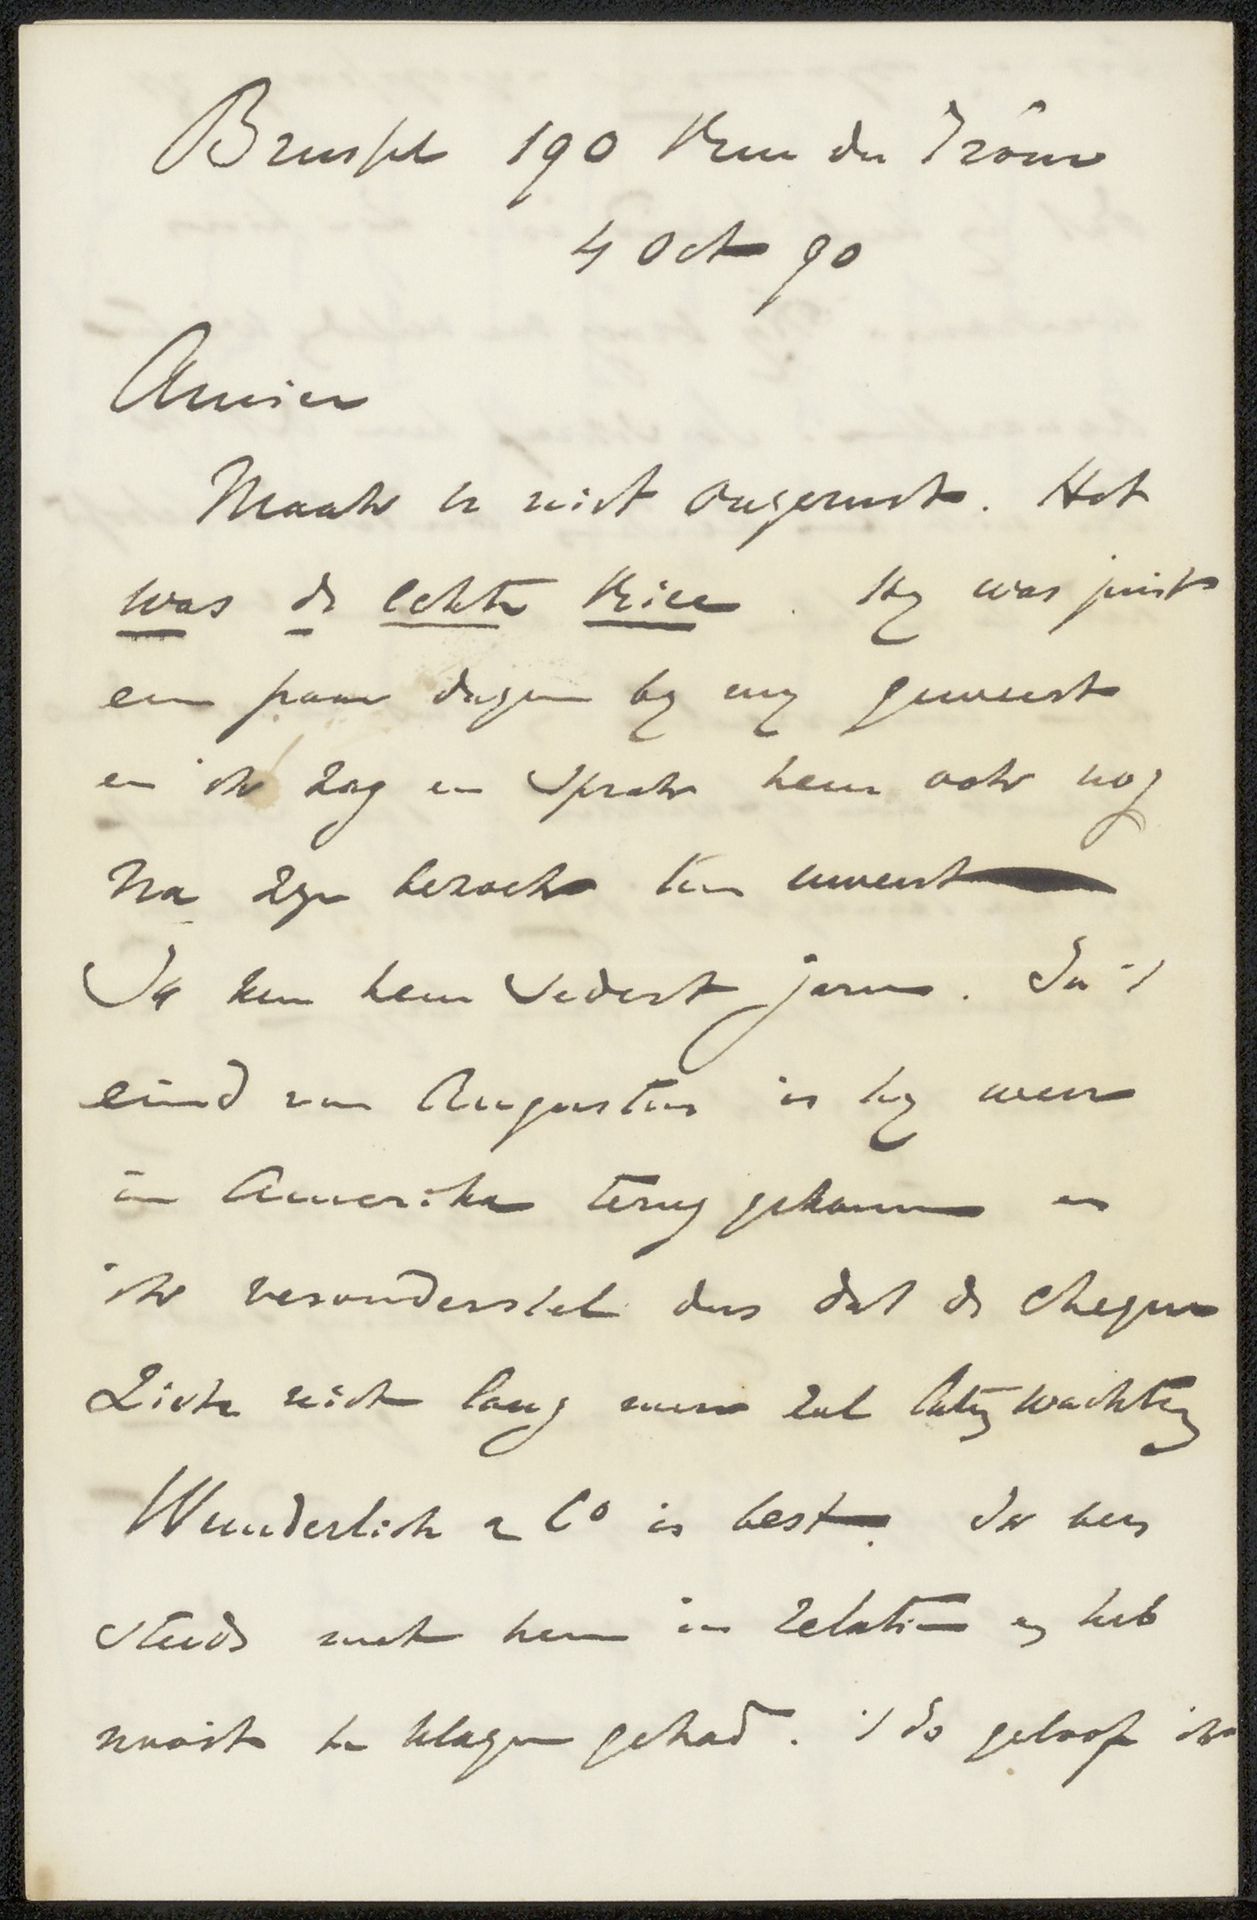 Brussel 190 Rue du Trône
4 Oct 90
Amice
Maak u niet ongerust. Het
was de echte Rice. Hy was juist
een paar dagen by my geweest
en ik zag en sprak hem ook nog
na zyn bezoek ten uwent
Ik ken hem sedert jaren. In 't
eind van Augustus is hy weer
in Amerika terug gekomen en
ik veronderstel dus dat de cheque
zich niet lang meer zal laten wachten
Wunderlich & Co is best. Ik ben
steeds met hem in relatie en heb
nooit te klagen gehad. 't Is geloof ik